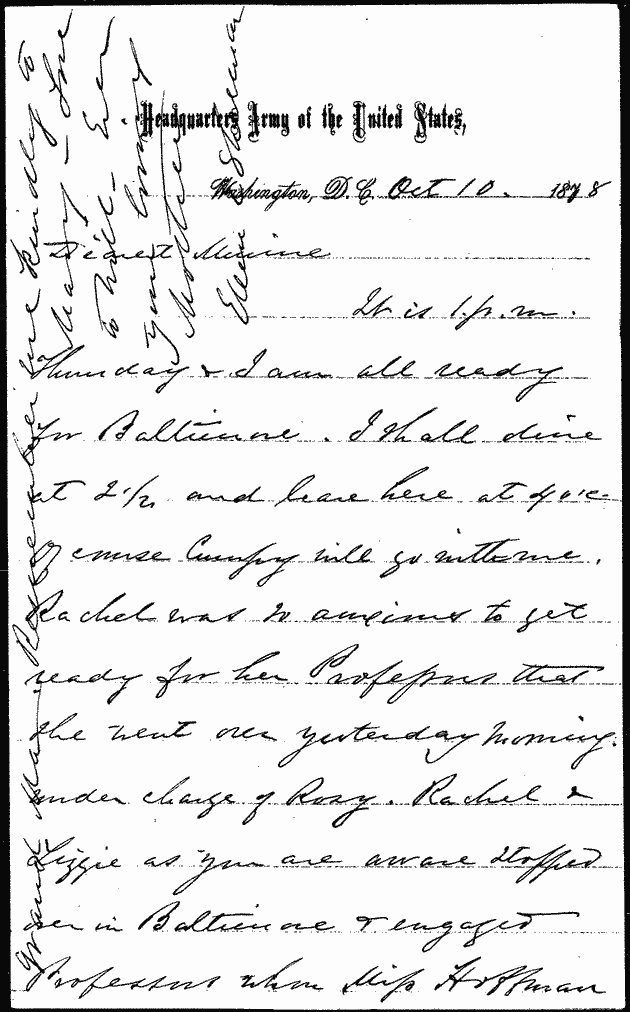 Headquarters Army of the United States,
Washington, D.C. Oct 10. 1878
Dearest Minnie
It is 1. p.m.
Thursday & I am all ready
for Baltimore. I shall dine
at 2 1/2 and leave here at 4 o'c-
Of course Cumpy will go with me.
Rachel was so anxious to get
ready for her Professors that
she went over yesterday morning.
under charge of Rosy. Rachel &
Lizzie as you are aware stopped
over in Baltimore & engaged
Professors whom Miss Hoffman
Grand Ma. Remember me kindly to
Mary - Love
to Will - Ever
your loving
Mother
Ellen E Sherman